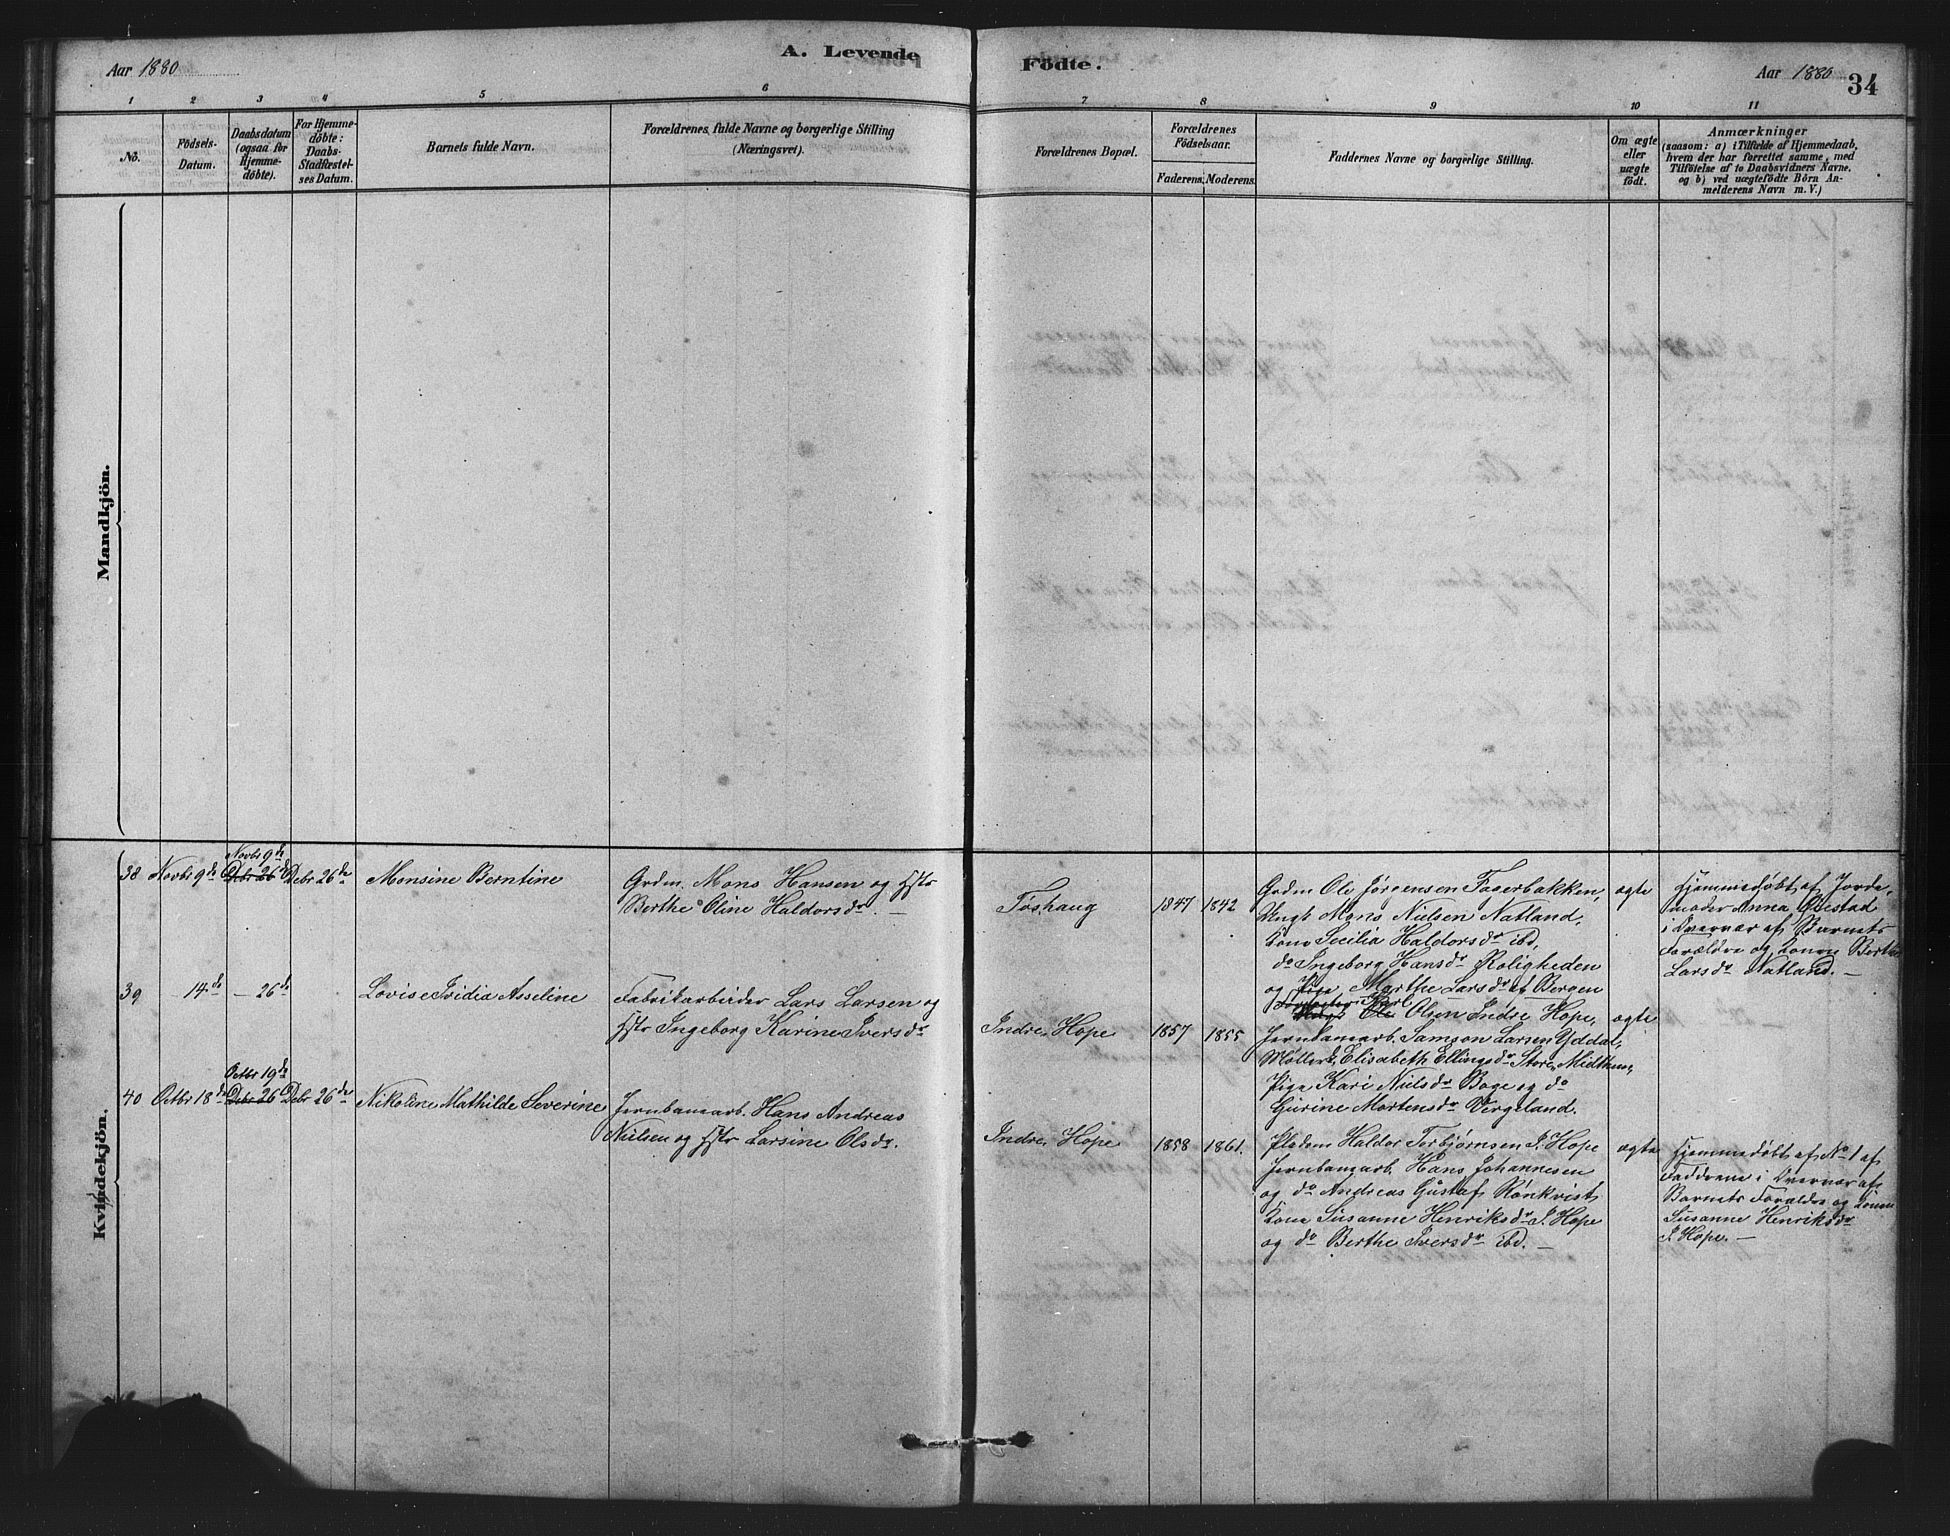 Aar 1880
A. Levende
Födte.
Aar 1880
34
1 2 3 4 5 6 7 8 9 10 11
No.
Födsels-
Datum.
Daabsdatum
(ogsaa for
Hjemme-
döbte).
For Hjemme-
döbte:
Daabs-
Stadfæstel-
ses Datum.
Barnets fulde Navn.
Forældrenes fulde Navne og borgerlige Stilling
(Næringsvei).
Forældrenes Bopæl.
Forældrenes
Födselsaar.
Faderens. Moderens.
Faddernes Navne og borgerlige Stilling.
Om ægte
eller
uægte
födt.
Anmærkninger
(saasom: a) i Tilfælde af Hjemmedaab,
hvem der har forrettet samme, med
Tilföielse af to Daabsvidners Navne,
og b) ved uægtefödte Börn An-
melderens Navn m. V.)
Mandkjön.
Kvindekjön.
38
Novbr 9de
Novbr 9de
Debr 26de
Debr 26de
Monsine Berntine
Grdm. Mons Hansen og Hstr
Berthe Oline Haldorsdr. —
Toshaug
1847
1842
Grdm Ole Jørgensen Fagerbakken,
Ungk Mons Nielsen Natland,
Kone Secilia Haldorsdr ibd,
do Ingeborg Hansdr Roligheden
og Pige Marthe Larsdr af Bergen
ægte
Hjemmedøbt af Jorde-
moder Anna
i Overvær af Barnets
Forældre og Konen Berthe
Larsdr Natland. —
39
14de
— 26de
Lovise Fridia Asseline
Fabrikarbeider Lars Larsen og
Hstr Ingeborg Karine Iversdr
Indre Hope
1857
1855
Karl
Ole Olsen Indre Hope,
Jernbanearb. Samson Larsen Yddal,
Møllerk. Elisabeth Ellingsdr Store Midthun,
Pige Kari Nielsdr Boge og do
Gurine Mortensdr Vergeland.
ægte
40
Octbr 18de
Octbr 19de
Debr 26
Debr 26de
Nikoline Mathilde Severine
Jernbanearb. Hans Andreas
Nielsen og Hstr Larsine Olsdr.
Indre Hope
1858
1861.
Pladsm Haldor Torbjørnsen I. Hope
Jernbanearb. Hans Johannesen
og do Andreas Gustaf Rønkvist
Kone Susanne Henriksdr I. Hope
og do Berthe Iversdr ibd. —
ægte
Hjemmedøbt af No 1 af
Fadderne i Overvær af
Barnets Forældre og Konen
Susanne Henriksdr
I. Hope. —